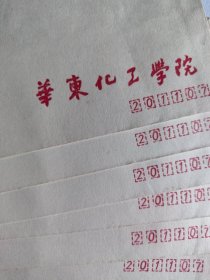 華東化工學院
201107
201107
201107
201107
201107
201107